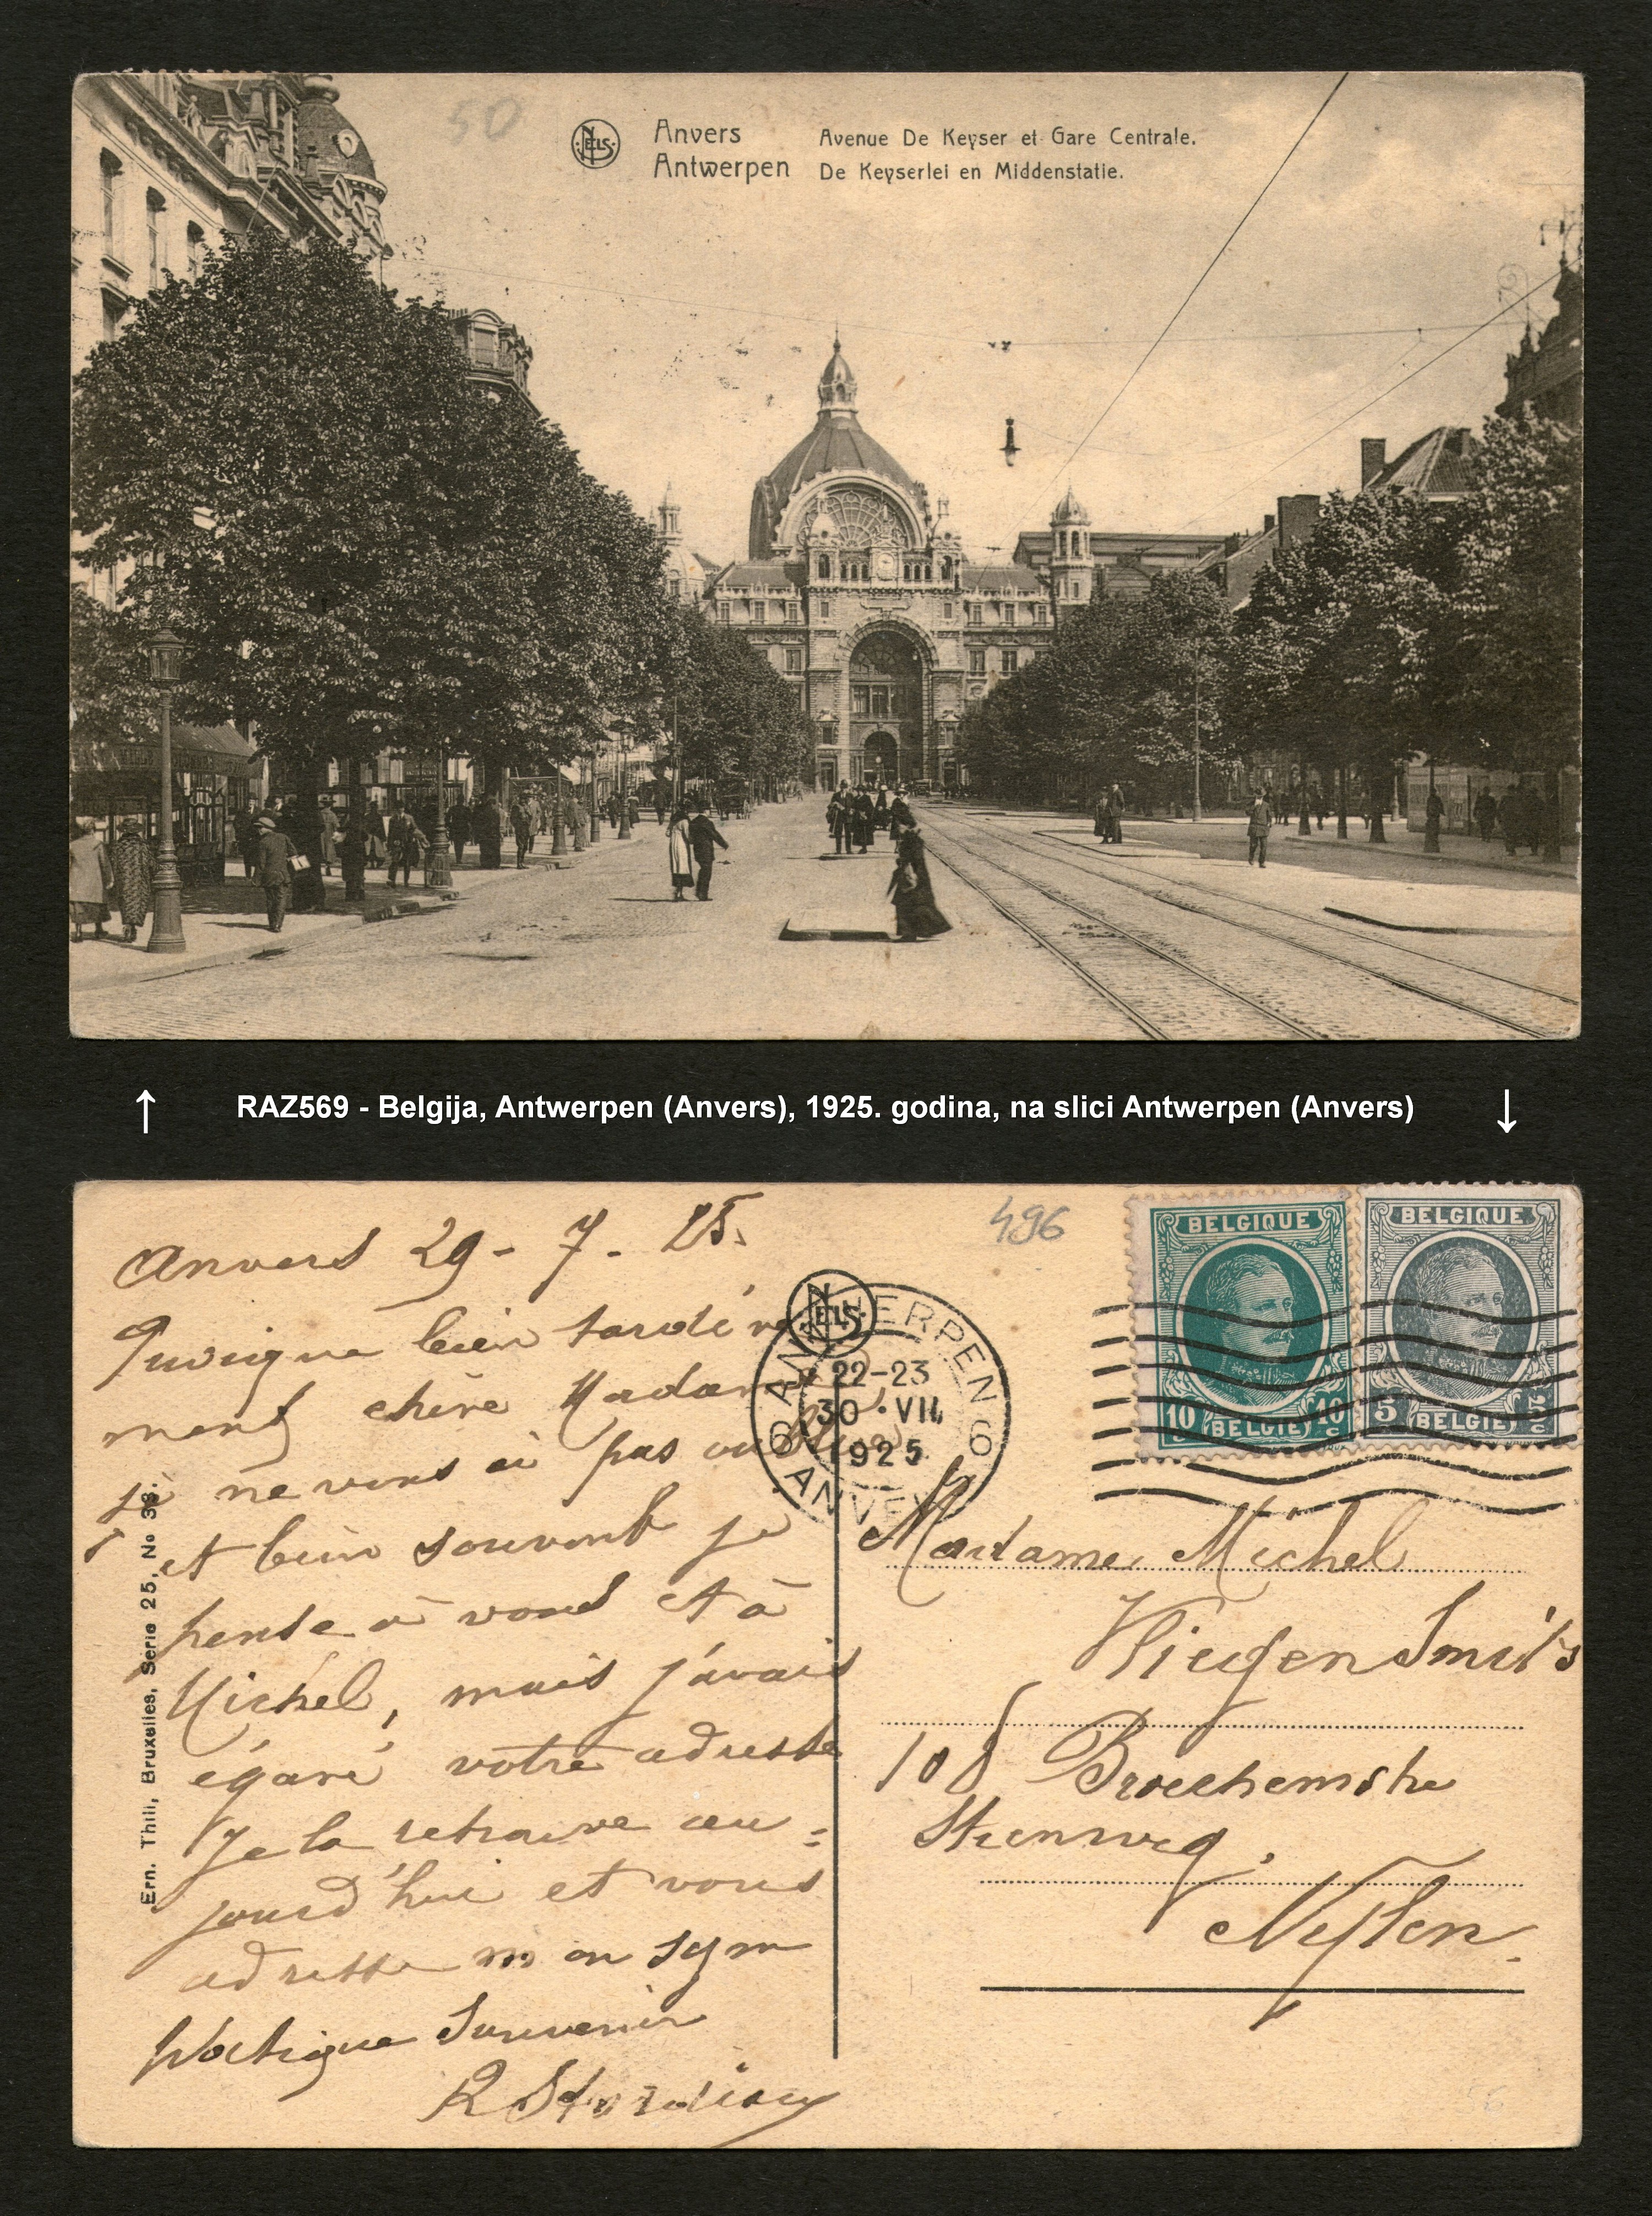 50
NELS
Anvers Avenue De Keyser et Gare Centrale.
Antwerpen De Keyserlei en Middenstatie.
RAZ569 - Belgija, Antwerpen (Anvers), 1925. godina, na slici Antwerpen (Anvers)
Anvers 29-7-25.
496
Quoique bien tardive
ment chère Madame
je ne vous ai pas oublié
et bien souvent je
pense à vous et à
Michel, mais j'avais
égaré votre adresse
Je la retrouve au-
jourd'hui et vous
adresse mon sym
phatique souvenir
Ern. Thill, Bruxelles, Serie 25, No 38.
NELS
ANTWERPEN
22-23
30·VII
1925
6 6
ANVERS
BELGIQUE
10c 10c
BELGIË
BELGIQUE
5c 5c
BELGIË
Madame Michel
108 Broechemsche
Steenweg,
Nylen